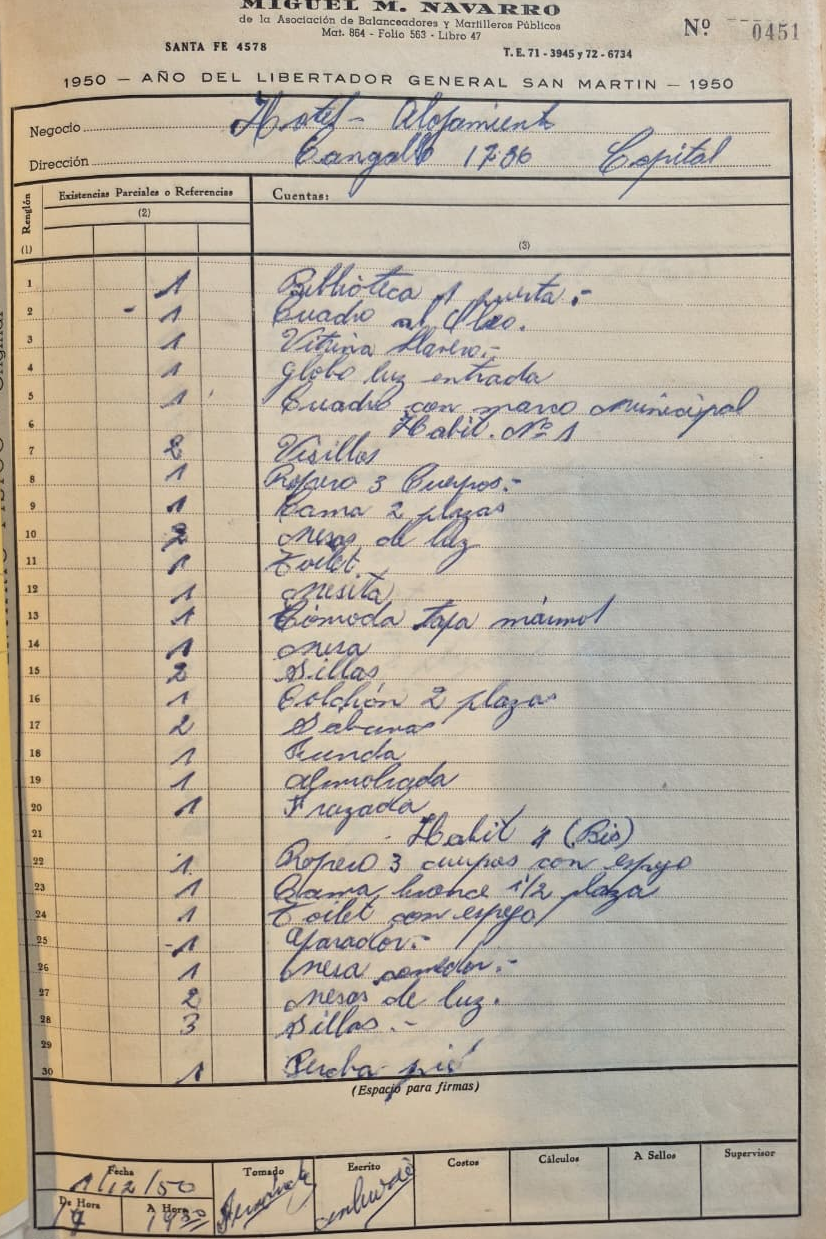 MIGUEL M. NAVARRO
de la Asociación de Balanceadores y Martilleros Públicos
Mat. 864 - Folio 563 - Libro 47
Nº 0451
SANTA FE 4578
T. E. 71 - 3945 y 72 - 6734
1950 — AÑO DEL LIBERTADOR GENERAL SAN MARTIN — 1950
Negocio Hotel - Alojamiento
Dirección Cangallo 1736 Capital
Renglón Existencias Parciales o Referencias Cuentas:
(1) (2) (3)
1 1 Biblioteca 1 puerta.-
2 - 1 Cuadro al Oleo.
3 1 Vitrina llavero.-
4 1 Globo luz entrada
5 1 Cuadro con marco municipal
6 Habit. Nº 1
7 2 Visillos
8 1 Ropero 3 Cuerpos.-
9 1 Cama 2 plazas
10 2 Mesas de luz
11 1 Toilet
12 1 Mesita
13 1 Cómoda tapa mármol
14 1 Mesa
15 2 Sillas
16 1 Colchón 2 plazas
17 2 Sabanas
18 1 Funda
19 1 Almohada
20 1 Frazada
21 Habit 1 (Bis)
22 1 Ropero 3 cuerpos con espejo
23 1 Cama bronce 1/2 plaza
24 1 Toilet con espejo
25 -1 Aparador.-
26 1 Mesa comedor.-
27 2 Mesas de luz.
28 3 Sillas.-
29
30 1 Percha pié
(Espacio para firmas)
Fecha Tomado Escrito Costos Cálculos A Sellos Supervisor
1/12/50
De Hora A Hora
17 19 30
Original